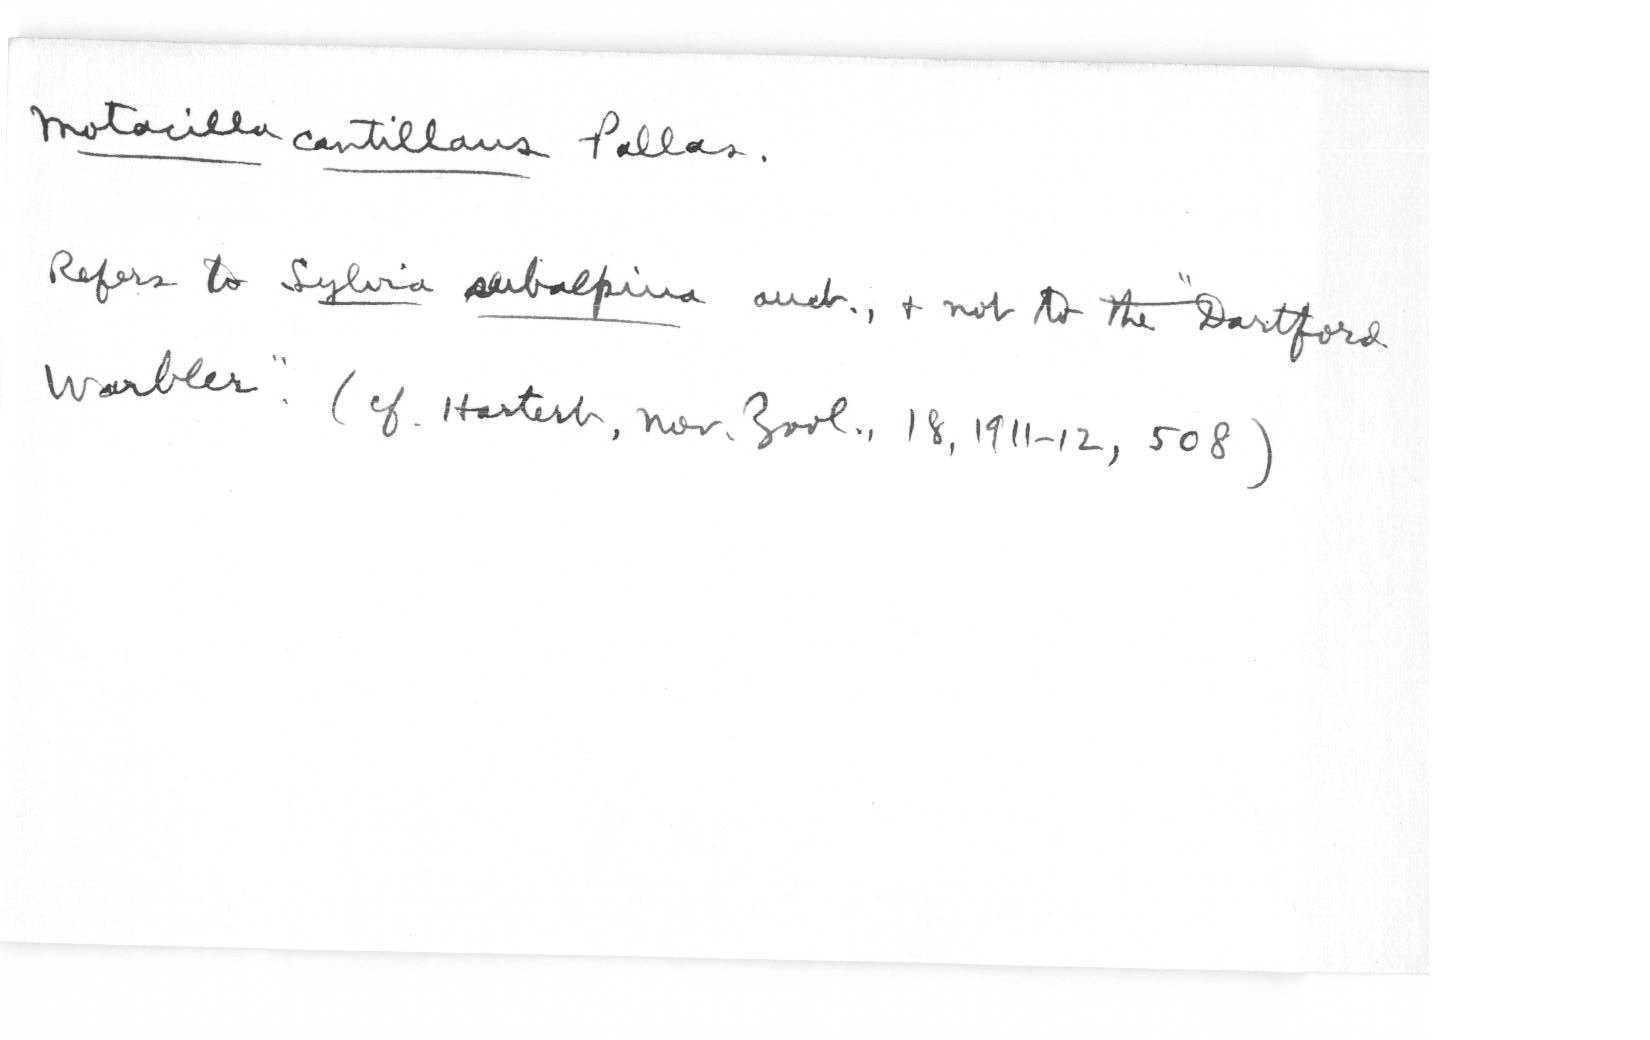 Motacilla cantillans Pallas.
Refers to Sylvia subalpina auct., + not to the "Dartford
Warbler". (cf. Hartert, Nov. Zool., 18, 1911-12, 508)